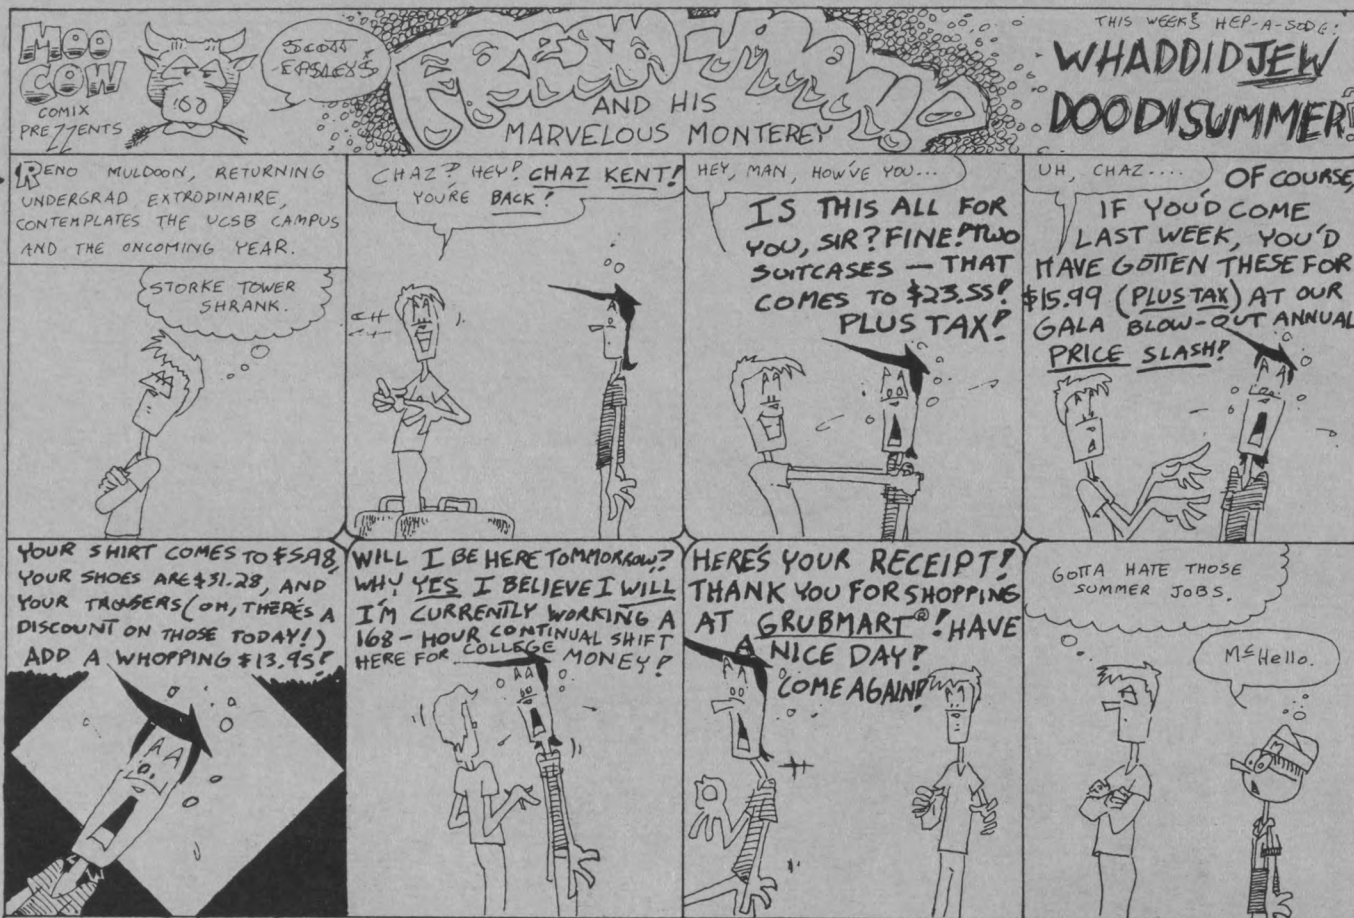 MOO
COW
COMIX
PREZZENTS
SCOTT
EPSLEY'S
FRESH JIMMY
AND HIS
MARVELOUS MONTEREY
THIS WEEK'S HEP-A-SODE:
WHADDIDJEW
DOODISUMMER?
RENO MULDOON, RETURNING
UNDERGRAD EXTRODINAIRE,
CONTEMPLATES THE UCSB CAMPUS
AND THE ONCOMING YEAR.
STORKE TOWER
SHRANK.
CHAZ? HEY! CHAZ KENT!
YOU'RE BACK!
HEY, MAN, HOW'VE YOU...
IS THIS ALL FOR
YOU, SIR? FINE! TWO
SUITCASES — THAT
COMES TO $23.55!
PLUS TAX!
UH, CHAZ....
OF COURSE,
IF YOU'D COME
LAST WEEK, YOU'D
HAVE GOTTEN THESE FOR
$15.99 (PLUS TAX) AT OUR
GALA BLOW-OUT ANNUAL
PRICE SLASH!
YOUR SHIRT COMES TO $5.98,
YOUR SHOES ARE $31.28, AND
YOUR TROUSERS (OH, THERE'S A
DISCOUNT ON THOSE TODAY!)
ADD A WHOPPING $13.95!
WILL I BE HERE TOMMORROW?
WHY YES I BELIEVE I WILL
I'M CURRENTLY WORKING A
168-HOUR CONTINUAL SHIFT
HERE FOR COLLEGE MONEY!
HERE'S YOUR RECEIPT!
THANK YOU FOR SHOPPING
AT GRUBMART®! HAVE
A NICE DAY!
COME AGAIN!
GOTTA HATE THOSE
SUMMER JOBS.
McHello.